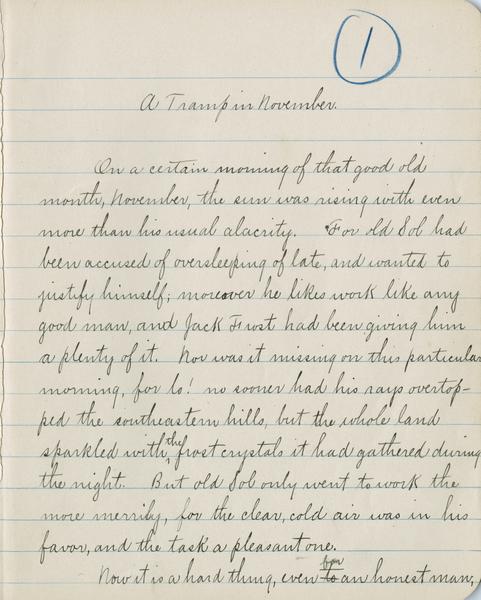 1
A Tramp in November.
On a certain morning of that good old
month, November, the sun was rising with even
more than his usual alacrity. For old Sol had
been accused of oversleeping of late, and wanted to
justify himself; moreover he likes work like any
good man, and Jack Frost had been giving him
a plenty of it. Nor was it missing on this particular
morning, for lo! no sooner had his rays overtop-
ped the southeastern hills, but the whole land
sparkled with the frost crystals it had gathered during
the night. But old Sol only went to work the
more merrily, for the clear, cold air was in his
favor, and the task a pleasant one.
Now it is a hard thing, even to for an honest man,